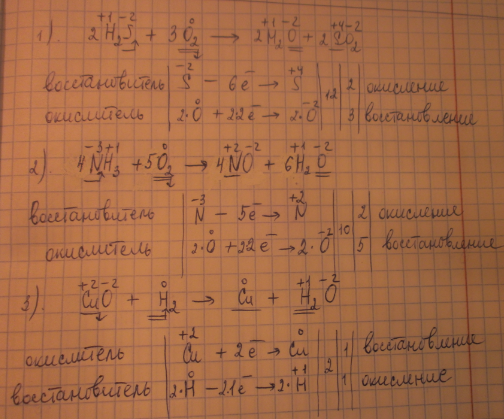 1). 2H₂⁺¹S⁻² + 3O₂⁰ → 2H₂⁺¹O⁻² + 2S⁺⁴O₂⁻²
восстановитель | S⁻² − 6e⁻ → S⁺⁴ | 12 | 2 | окисление
окислитель | 2·O⁰ + 2·2e⁻ → 2·O⁻² | 3 | восстановление
2). 4N⁻³H₃⁺¹ + 5O₂⁰ → 4N⁺²O⁻² + 6H₂⁺¹O⁻²
восстановитель | N⁻³ − 5e⁻ → N⁺² | 2 | окисление
окислитель | 2·O⁰ + 2·2e⁻ → 2·O⁻² | 10 | 5 | восстановление
3). Cu⁺²O⁻² + H₂⁰ → Cu⁰ + H₂⁺¹O⁻²
окислитель | Cu⁺² + 2e⁻ → Cu⁰ | 1 | восстановление
восстановитель | 2·H⁰ − 2·1e⁻ → 2·H⁺¹ | 2 | 1 | окисление